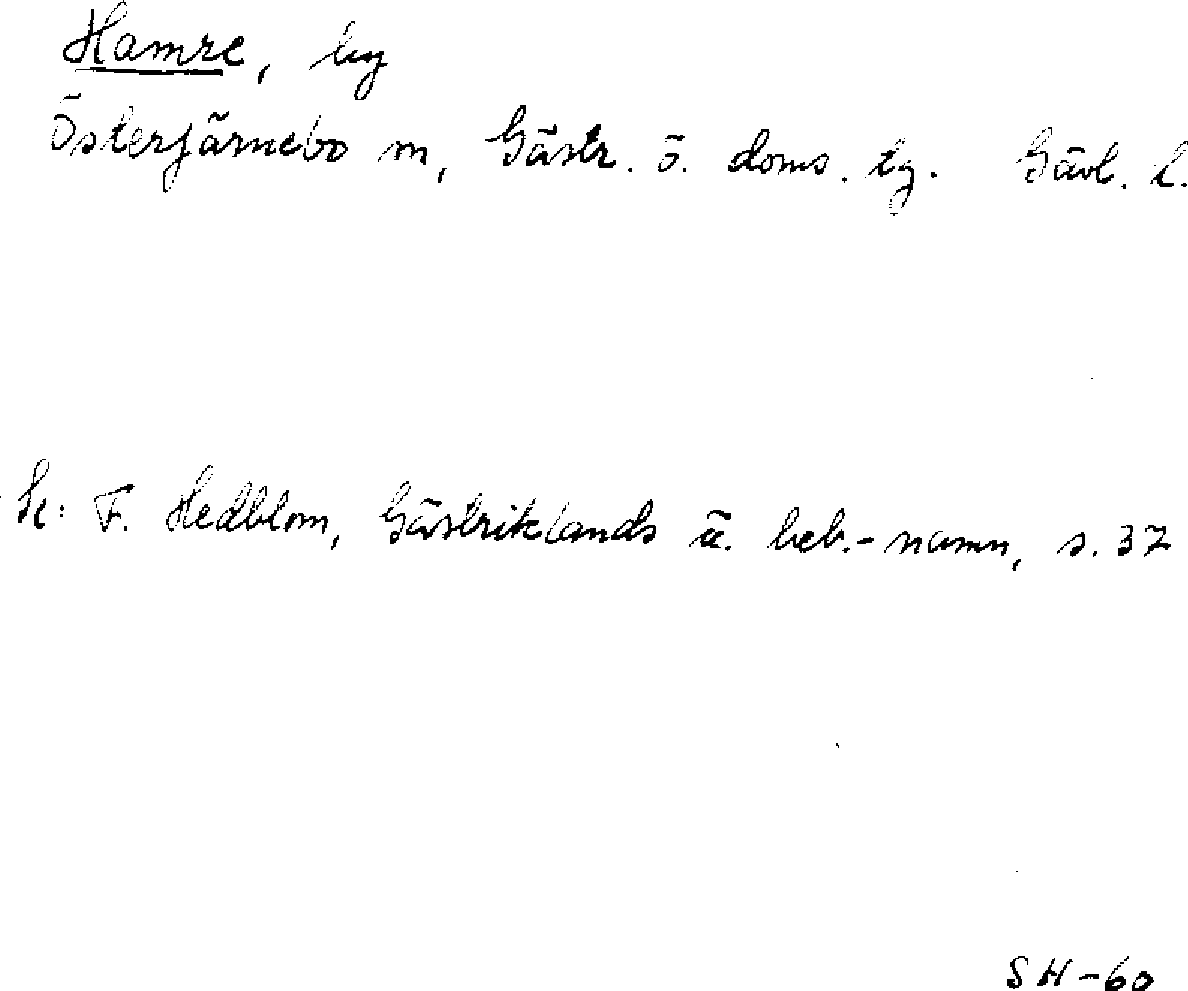 Hamre, by
Österfärnebo sn, Gästr. ö. doms. tg. Gävl. l.
Se: F. Hedblom, Gästriklands ä. beb.-namn, s. 37
SH-60